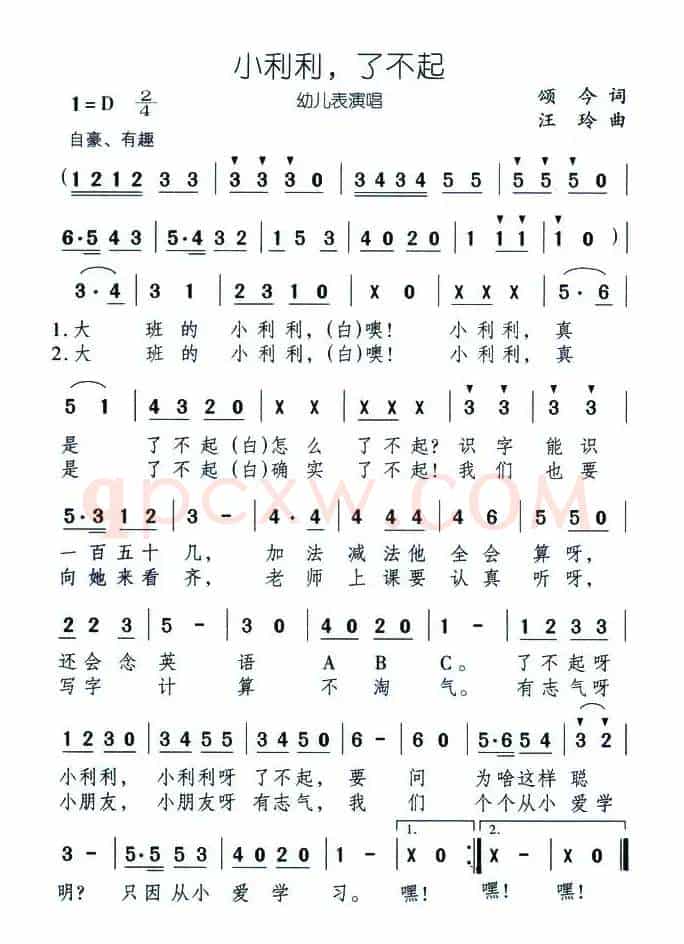 小利利，了不起
1=D 2/4 幼儿表演唱 颂今词
汪玲曲
自豪、有趣
(1212 33 | 3330 | 3434 55 | 5550 |
6·543 | 5·432 | 1 53 | 4020 | 1 11 | 1 0 )
3·4 | 3 1 | 2310 | X 0 | XXX | 5·6 |
1.大 班的 小利利，(白)噢！ 小利利，真
2.大 班的 小利利，(白)噢！ 小利利，真
5 1 | 4320 | X X | XXX0 | 3 3 | 3 3 |
是 了不起(白)怎么 了不起？识字 能识
是 了不起(白)确实 了不起！我们 也要
5·3 12 | 3 - | 4·4 | 4 44 | 4 6 | 5 50 |
一百五十 几， 加法 减法他 全会 算呀，
向她来看 齐， 老师 上课要 认真 听呀，
2 2 3 | 5 - | 3 0 | 4020 | 1 - | 1233 |
还会念 英 语 A B C。 了不起呀
写字 计 算 不淘 气。 有志气呀
1230 | 3455 | 3450 | 6 - | 6 - | 5·654 | 3 2 |
小利利， 小利利呀 了不起， 要 问 为啥这样 聪
小朋友， 小朋友呀 有志气， 我 们 个个从小 爱学
3 - | 5·553 | 4020 | 1 - | 1. X 0 :| 2. X - | X 0 ‖
明？ 只因从小 爱学 习。 嘿！ 嘿！ 嘿！
qpcxw.COM